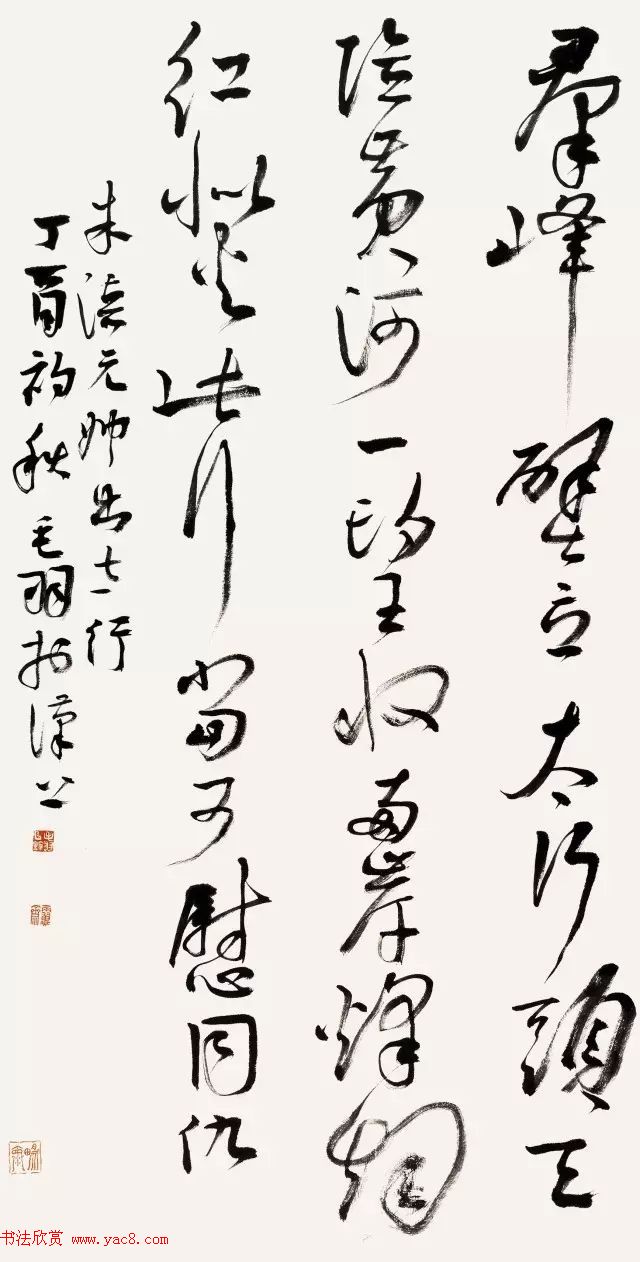 羣峰壁立太行頭天
險黄河一望收兩岸烽烟
红似火此行當可慰同仇
朱德元帅出太行
丁酉初秋毛羽於漢上
书法欣赏 www.yac8.com